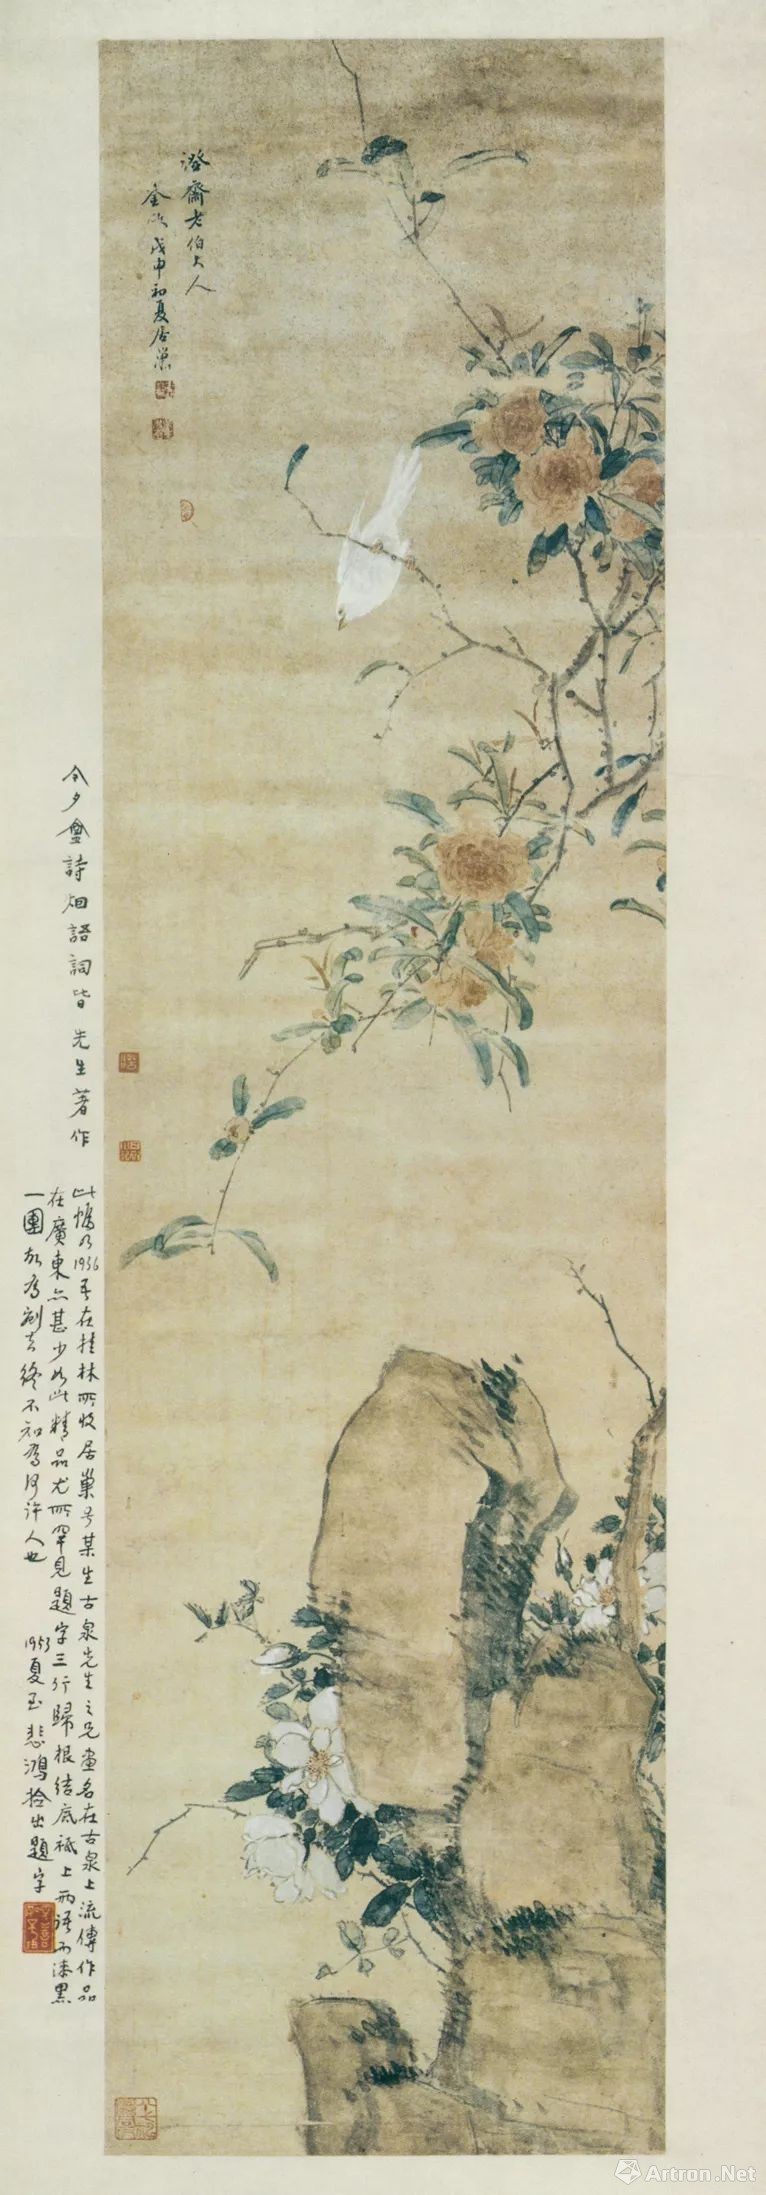 澄齋老伯大人
金砭戊申初夏居巢
今夕盦詩烟語詞皆先生著作
此幅乃1936年在桂林所收居巢号某生古泉先生之兄畫名在古泉上流傳作品
在廣東亦甚少如此精品尤所罕見題字三行歸根結底祗上兩語而漆黑
一團故為剜去終不知為何許人也
1953夏至悲鴻撿出題字
Artron.Net